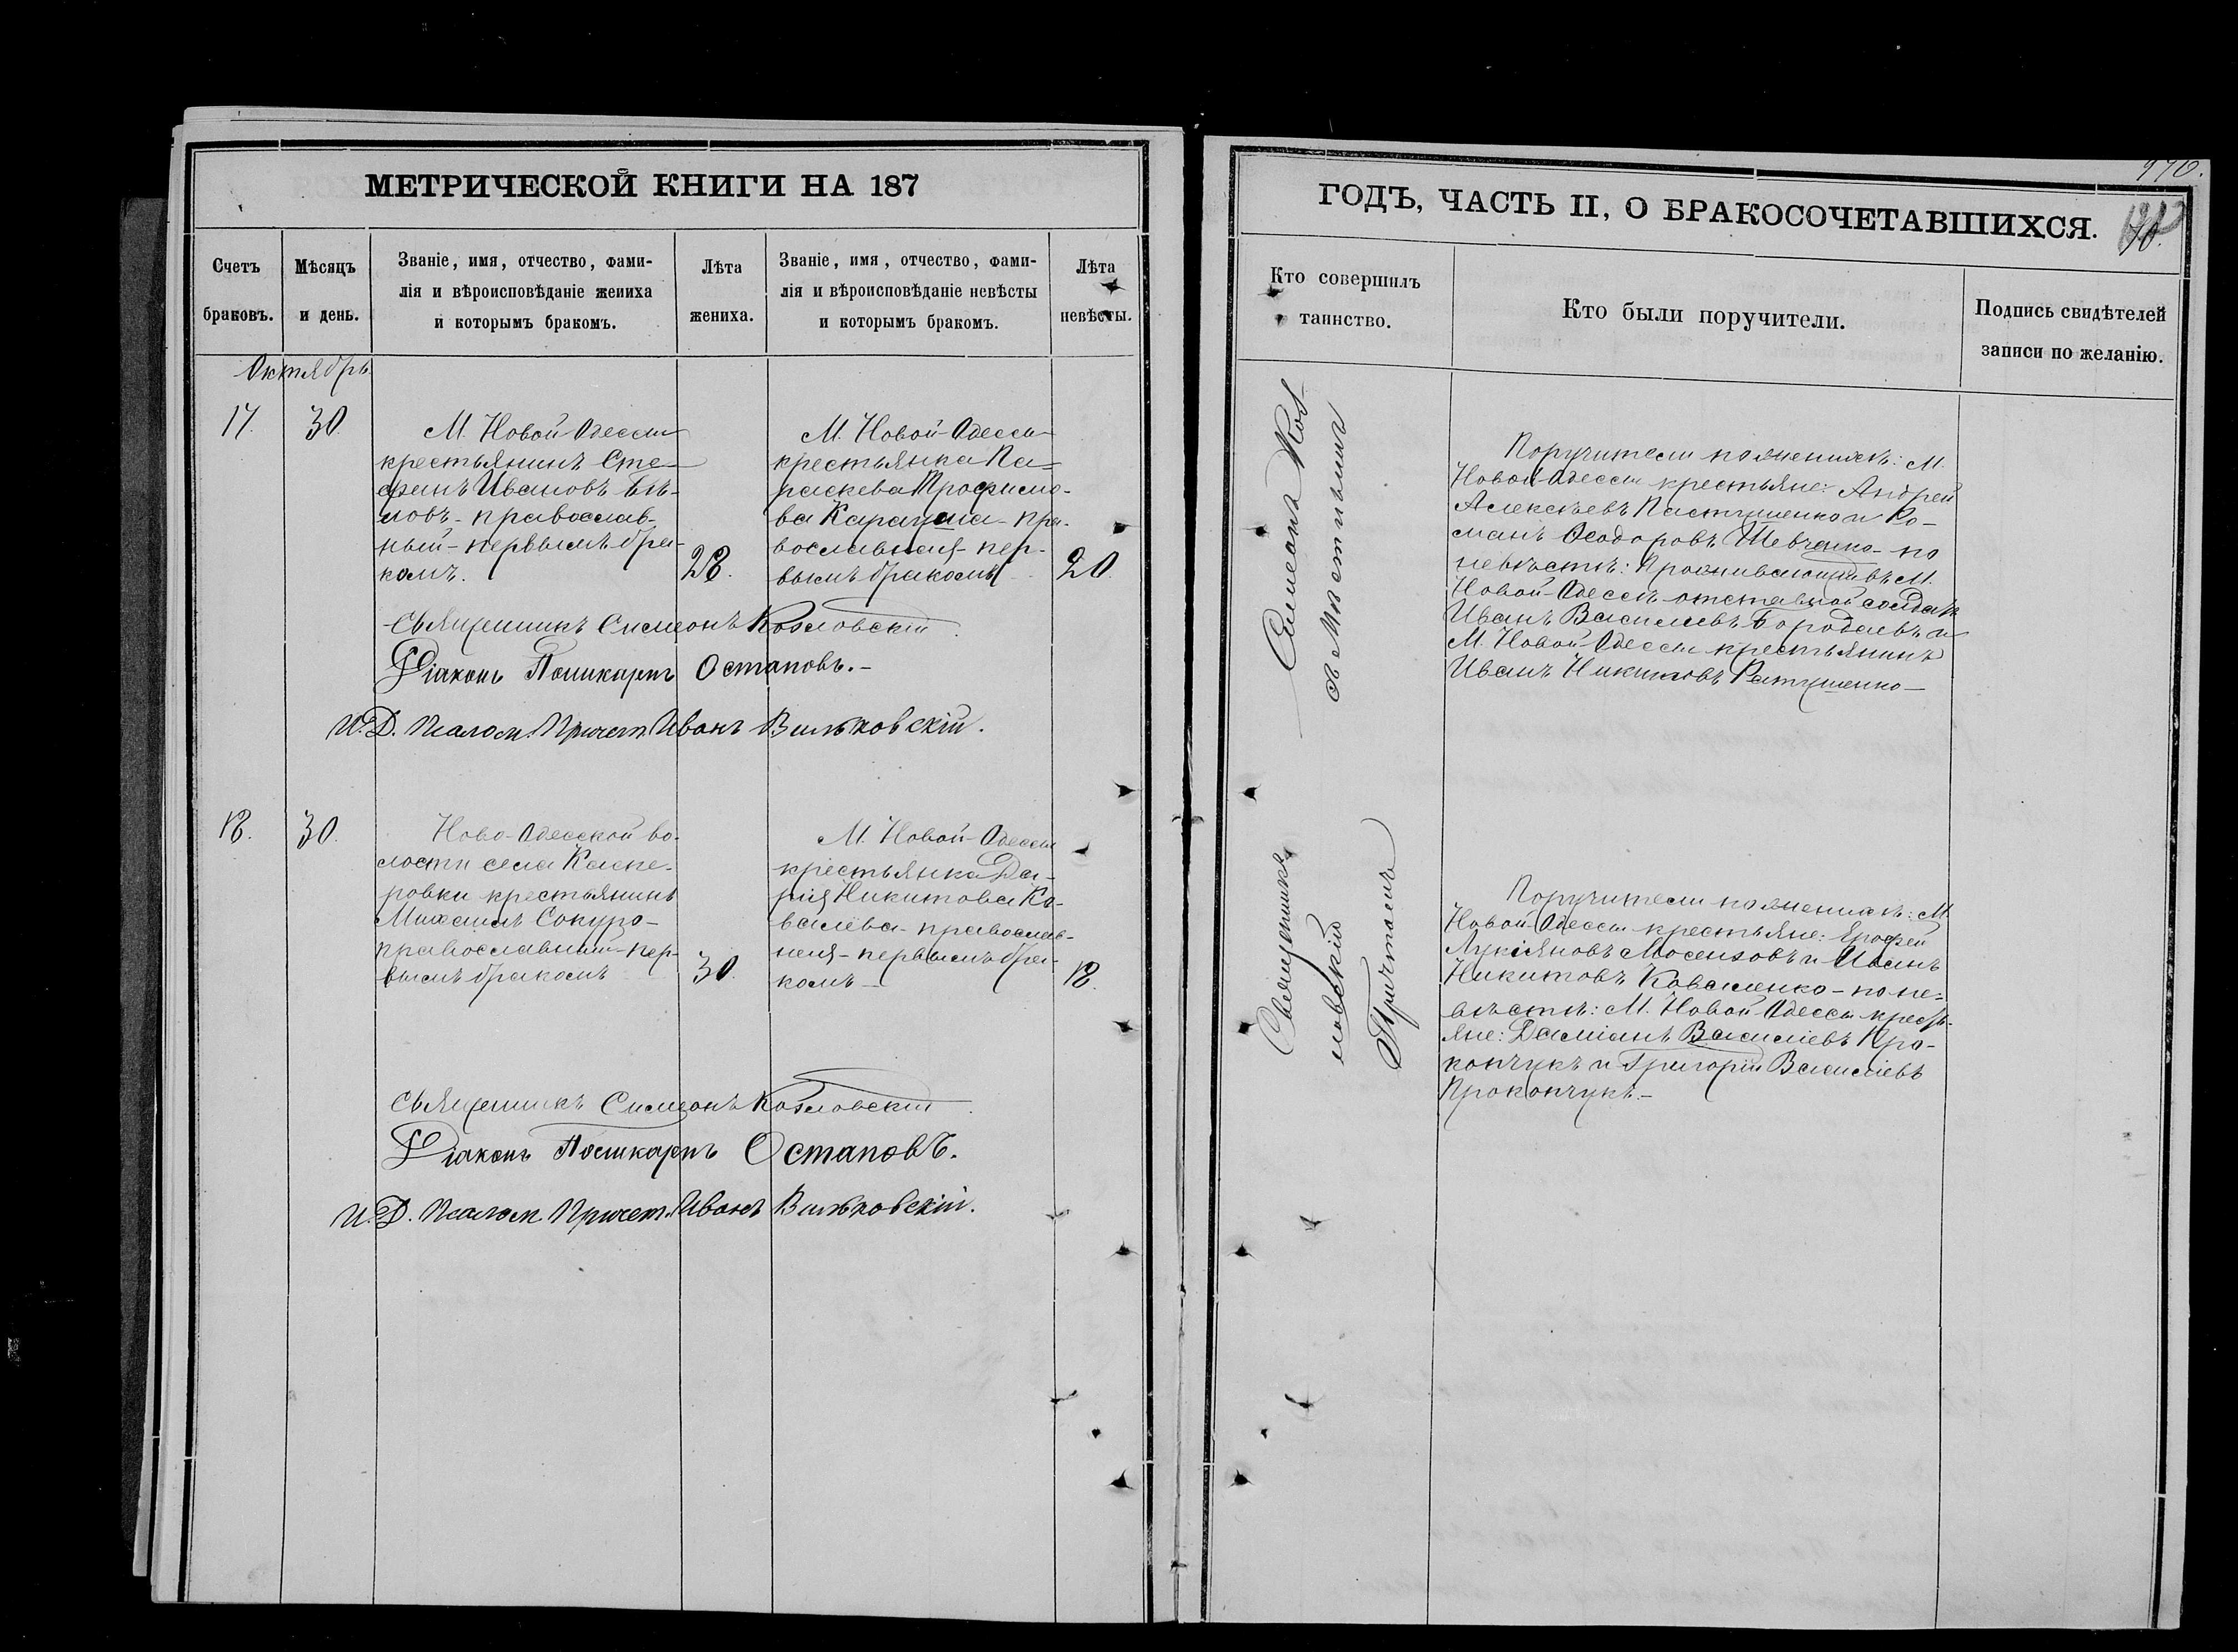 МЕТРИЧЕСКОЙ КНИГИ НА 187
Счетъ браковъ.
Мѣсяцъ и день.
Званіе, имя, отчество, фами-
лія и вѣроисповѣданіе жениха
и которымъ бракомъ.
Лѣта жениха.
Званіе, имя, отчество, фами-
лія и вѣроисповѣданіе невѣсты
и которымъ бракомъ.
Лѣта невѣсты.
Октябрь
17. 30.
М. Новой-Одессы
крестьянинъ Сте-
фанъ Ивановъ Бѣ-
ловъ - православ-
ный - первымъ бра-
комъ.
28.
М. Новой-Одессы
крестьянка Па-
раскева Трофимо-
ва Карауша - пра-
вославная - пер-
вымъ бракомъ
20.
Священникъ Симеонъ Козловскій.
Діаконъ Поликарпъ Остаповъ.-
И.Д. Псалом. Причет. Иванъ Вильковскій.
18. 30.
Ново-Одесской во-
лости села Каспе-
ровки крестьянинъ
Михаилъ Сокуро-
православный - пер-
вымъ бракомъ
30.
М. Новой-Одессы
крестьянка Да-
рія Никитова Ко-
валева - православ-
ная - первымъ бра-
комъ -
18.
Священникъ Симеонъ Козловскій.
Діаконъ Поликарпъ Остаповъ.
И.Д. Псалом. Причет. Иванъ Вильковскій.
970.
ГОДЪ, ЧАСТЬ II, О БРАКОСОЧЕТАВШИХСЯ.
Кто совершилъ таинство.
Кто были поручители.
Подпись свидѣтелей записи по желанію.
Священникъ Симеонъ Коз-
ловскій съ Мѣстнымъ
Причтомъ
Поручители по женихѣ: М.
Новой-Одессы крестьяне: Андрей
Алексѣевъ Пастушенко и Ро-
манъ Ѳеодоровъ Шевченко - по
невѣстѣ: Проживающій въ М.
Новой-Одессѣ отставной солдатъ
Иванъ Васильевъ Бородаевъ и
М. Новой Одессы крестьянинъ
Иванъ Никитовъ Ратушенко -
Поручители по женихѣ: М.
Новой-Одессы крестьяне: Ерофей
Лукіяновъ Мосензовъ и Иванъ
Никитовъ Коваленко - по не-
вѣстѣ: М. Новой Одессы кресть-
яне: Даміанъ Василіевъ Про-
кончукъ и Григорій Василіевъ
Прокончукъ. -